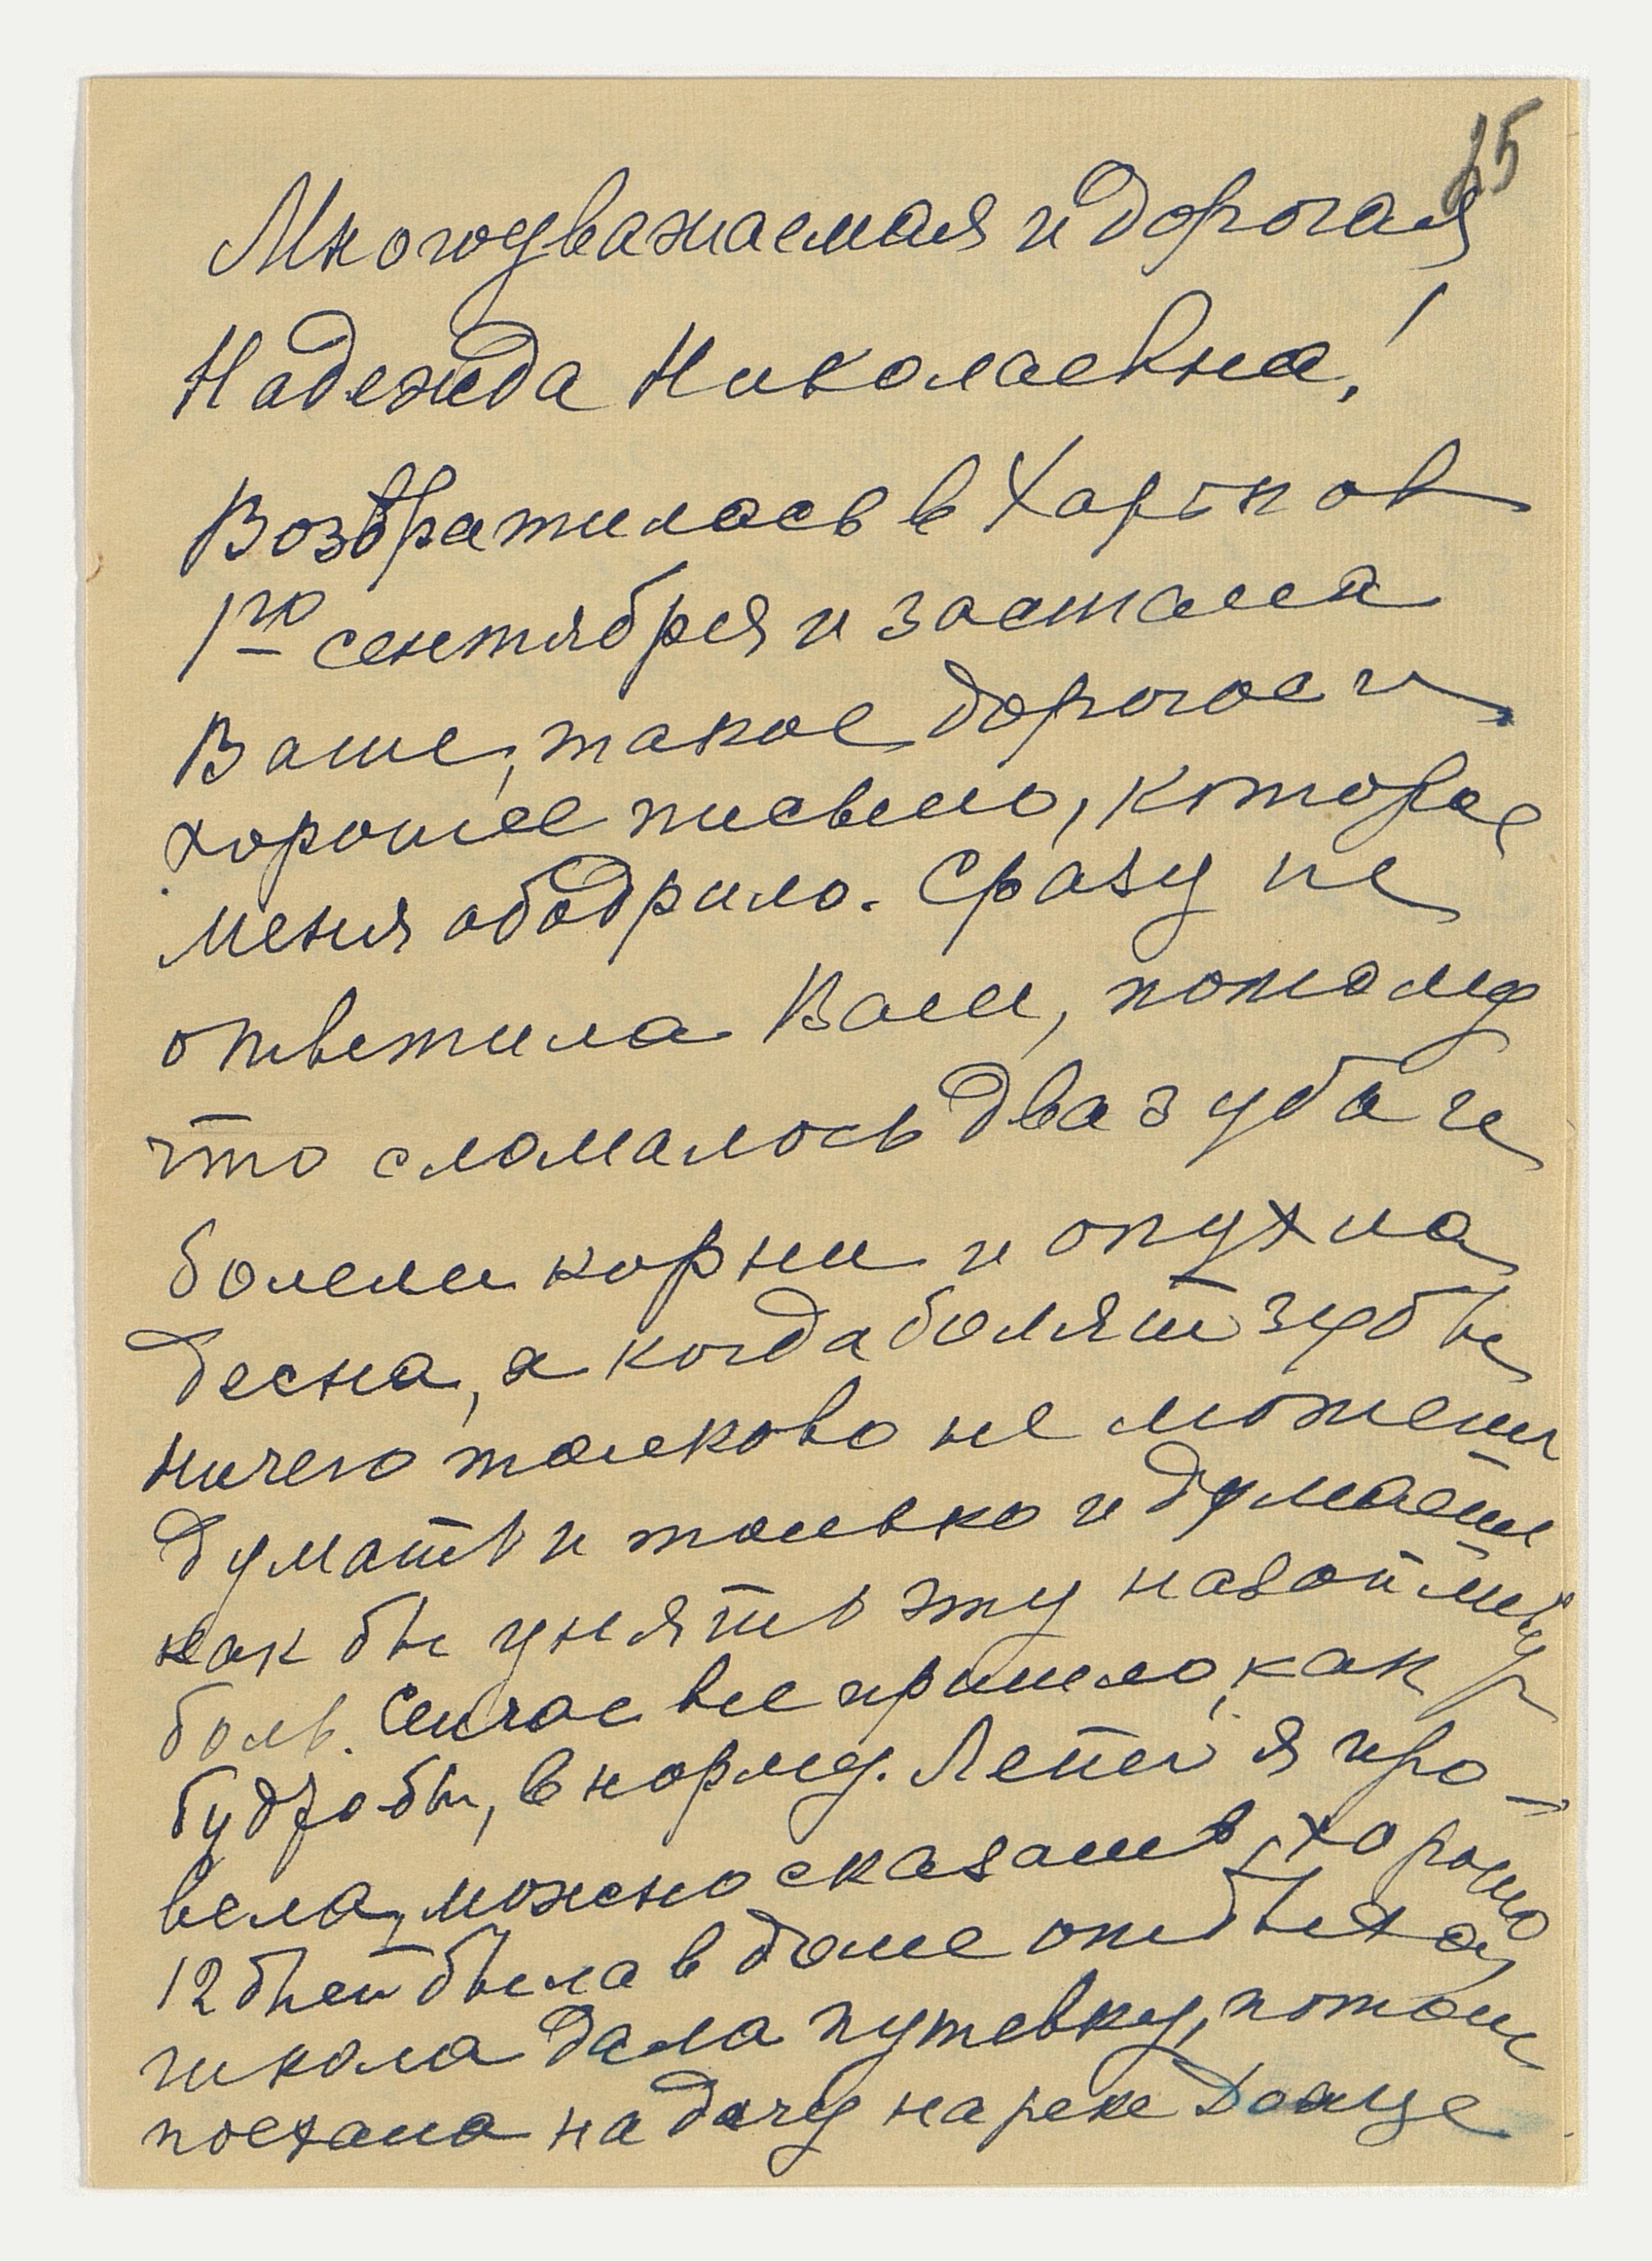 25
Многоуважаемая и дорогая
Надежда Николаевна!
Возвратилась в Харьков
1го сентября и застала
Ваше, такое дорогое и
хорошее письмо, которое
меня ободрило. Сразу не
ответила Вам, потому
что сломалось два зуба и
болели корни и опухла
десна, а когда болят зубы
ничего толково не можеш
думать и только и думаеш
как бы унять эту назойливую
боль. Сейчас все пришло, как
будто бы, в норму. Летом я про-
вела, можно сказать, хорошо
12 дней была в доме отдыха,
школа дала путевку, потом
поехала на дачу на реке Донце